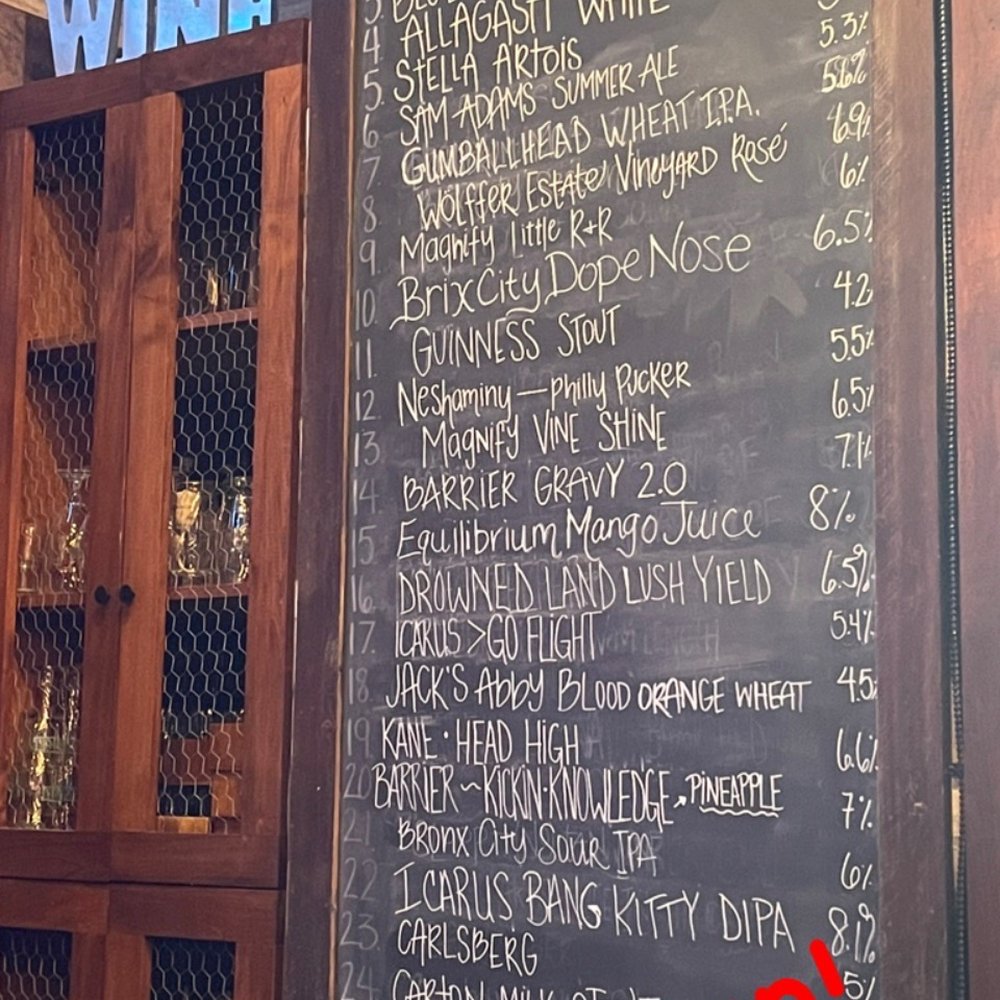 WINE
3.
4. ALLAGASH WHITE
5. STELLA ARTOIS 5.3%
6. SAM ADAMS SUMMER ALE 5.6%
7. GUMBALLHEAD WHEAT I.P.A. 6.9%
8. WÖLFFER ESTATE VINEYARD ROSÉ 6%
9. MAGNIFY LITTLE R+R 6.5%
10. BRIX CITY DOPE NOSE 4.2
11. GUINNESS STOUT 5.5%
12. NESHAMINY — PHILLY PUCKER 6.5%
13. MAGNIFY VINE SHINE 7.1%
14. BARRIER GRAVY 2.0
15. Equilibrium Mango Juice 8%
16. DROWNED LAND LUSH YIELD 6.5%
17. ICARUS > GO FLIGHT 5.4%
18. JACK'S Abby BLOOD ORANGE WHEAT 4.5%
19. KANE · HEAD HIGH 6.6%
20. BARRIER ~ KICKIN·KNOWLEDGE PINEAPPLE 7%
21. BRONX CITY SOUR IPA 6%
22. ICARUS BANG KITTY DIPA 8.1%
23. CARLSBERG 5%
24. CARTON MILK